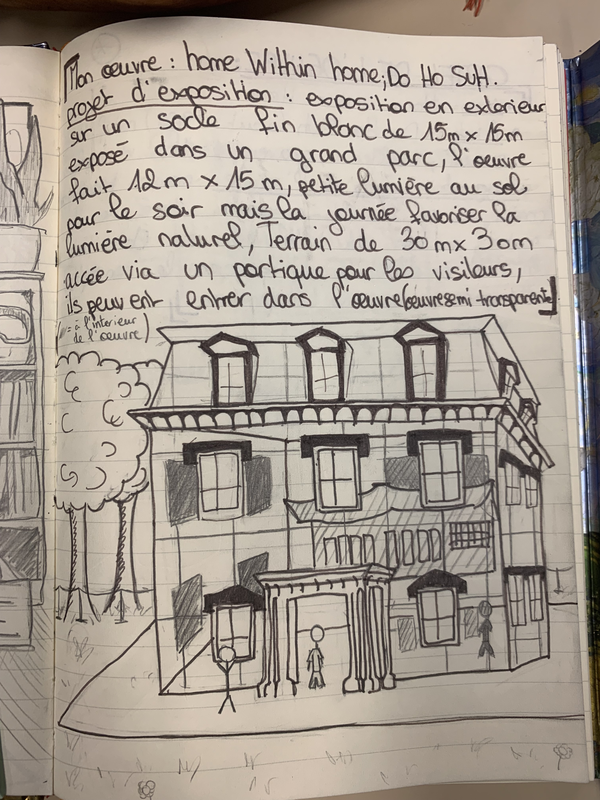 [Mon œuvre : home Within home, Do Ho SuH.
projet d'exposition : exposition en exterieur
sur un socle fin blanc de 15m x 15m
exposé dans un grand parc, l'œuvre
fait 12 m x 15 m, petite lumière au sol
pour le soir mais la journée favoriser la
lumière naturel, Terrain de 30 m x 30m
accée via un portique pour les visiteurs,
ils peuvent entrer dans l'œuvre (œuvre semi transparente)]
= à l'interieur
de l'œuvre)